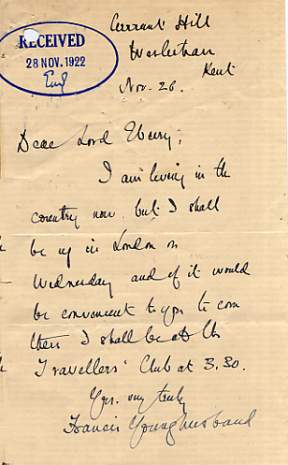 RECEIVED
28 NOV. 1922
Currant Hill
Westerham
Kent
Nov. 26.
Dear Lord Ebury;
I am living in the
country now but I shall
be up in London on
Wednesday and if it would
be convenient to you to come
there I shall be at the
Travellers' Club at 3.30.
Yrs. very truly
Francis Younghusband